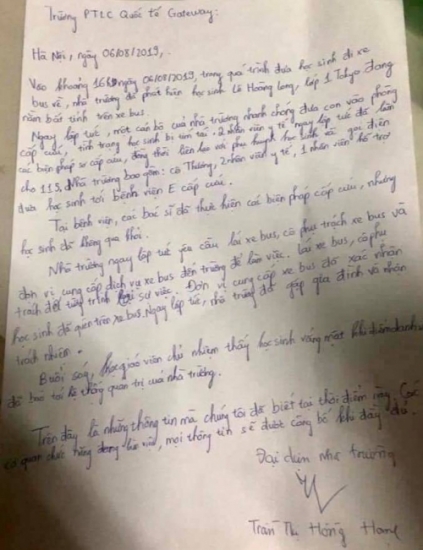 Trường PTLC Quốc tế Gateway.
Hà Nội, ngày 06/08/2019,.
Vào khoảng 16h ngày 06/08/2019, trong quá trình đưa học sinh đi xe
bus về, nhà trường đã phát hiện học sinh Lê Hoàng Long, lớp 1 Tokyo đang
nằm bất tỉnh trên xe bus.
Ngay lập tức, một cán bộ của nhà trường nhanh chóng đưa con vào phòng
cấp cứu, tình trạng học sinh bị tím tái. 2 nhân viên y tế ngay lập tức đã làm
các biện pháp sơ cấp cứu, đồng thời liên lạc với phụ huynh học sinh và gọi điện
cho 115. Nhà trường bao gồm: cô Thương, 2 nhân viên y tế, 1 nhân viên hỗ trợ
đưa học sinh tới bệnh viện E cấp cứu.
Tại bệnh viện, các bác sĩ đã thực hiện các biện pháp cấp cứu, nhưng
học sinh đã không qua khỏi.
Nhà trường ngay lập tức yêu cầu lái xe bus, cô phụ trách xe bus và
đơn vị cung cấp dịch vụ xe bus đến trường để làm việc. Lái xe bus, cô phụ
trách đã tường trình sự việc. Đơn vị cung cấp xe bus đã xác nhận
học sinh đã quên trên xe bus. Ngay lập tức, nhà trường đã gặp gia đình và nhận
trách nhiệm.
Buổi sáng, giáo viên chủ nhiệm thấy học sinh vắng mặt khi điểm danh và
đã báo tại hệ thống quản trị của nhà trường.
Trên đây là những thông tin mà chúng tôi đã biết tại thời điểm này. Các
cơ quan chức năng đang mọi thông tin sẽ được công bố khi đầy đủ.
Đại diện nhà trường
Trần Thị Hồng Hạnh